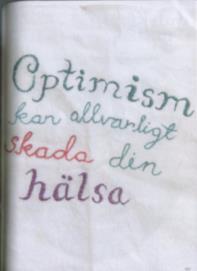 Optimism
kan allvarligt
skada din
hälsa